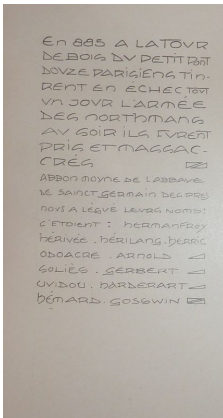 EN 885 A LA TOUR
DE BOIS DU PETIT PONT
DOUZE PARISIENS TIN-
RENT EN ÉCHEC TOUT
UN JOUR L'ARMÉE
DES NORTHMANS
AU SOIR ILS FURENT
PRIS ET MASSAC-
CRÉS
ABBON MOYNE DE L'ABBAYE
DE SAINCT GERMAIN DES PRÉS
NOUS A LÉGUÉ LEURS NOMS:
C'ÉTOIENT : HERMANFROY
HÉRIVÉE . HÉRILANG . HERRIC
ODOACRE . ARNOLD
SOLIÈS . GERBERT
UVIDOU . HARDERART
EÉMARD . GOSSWIN